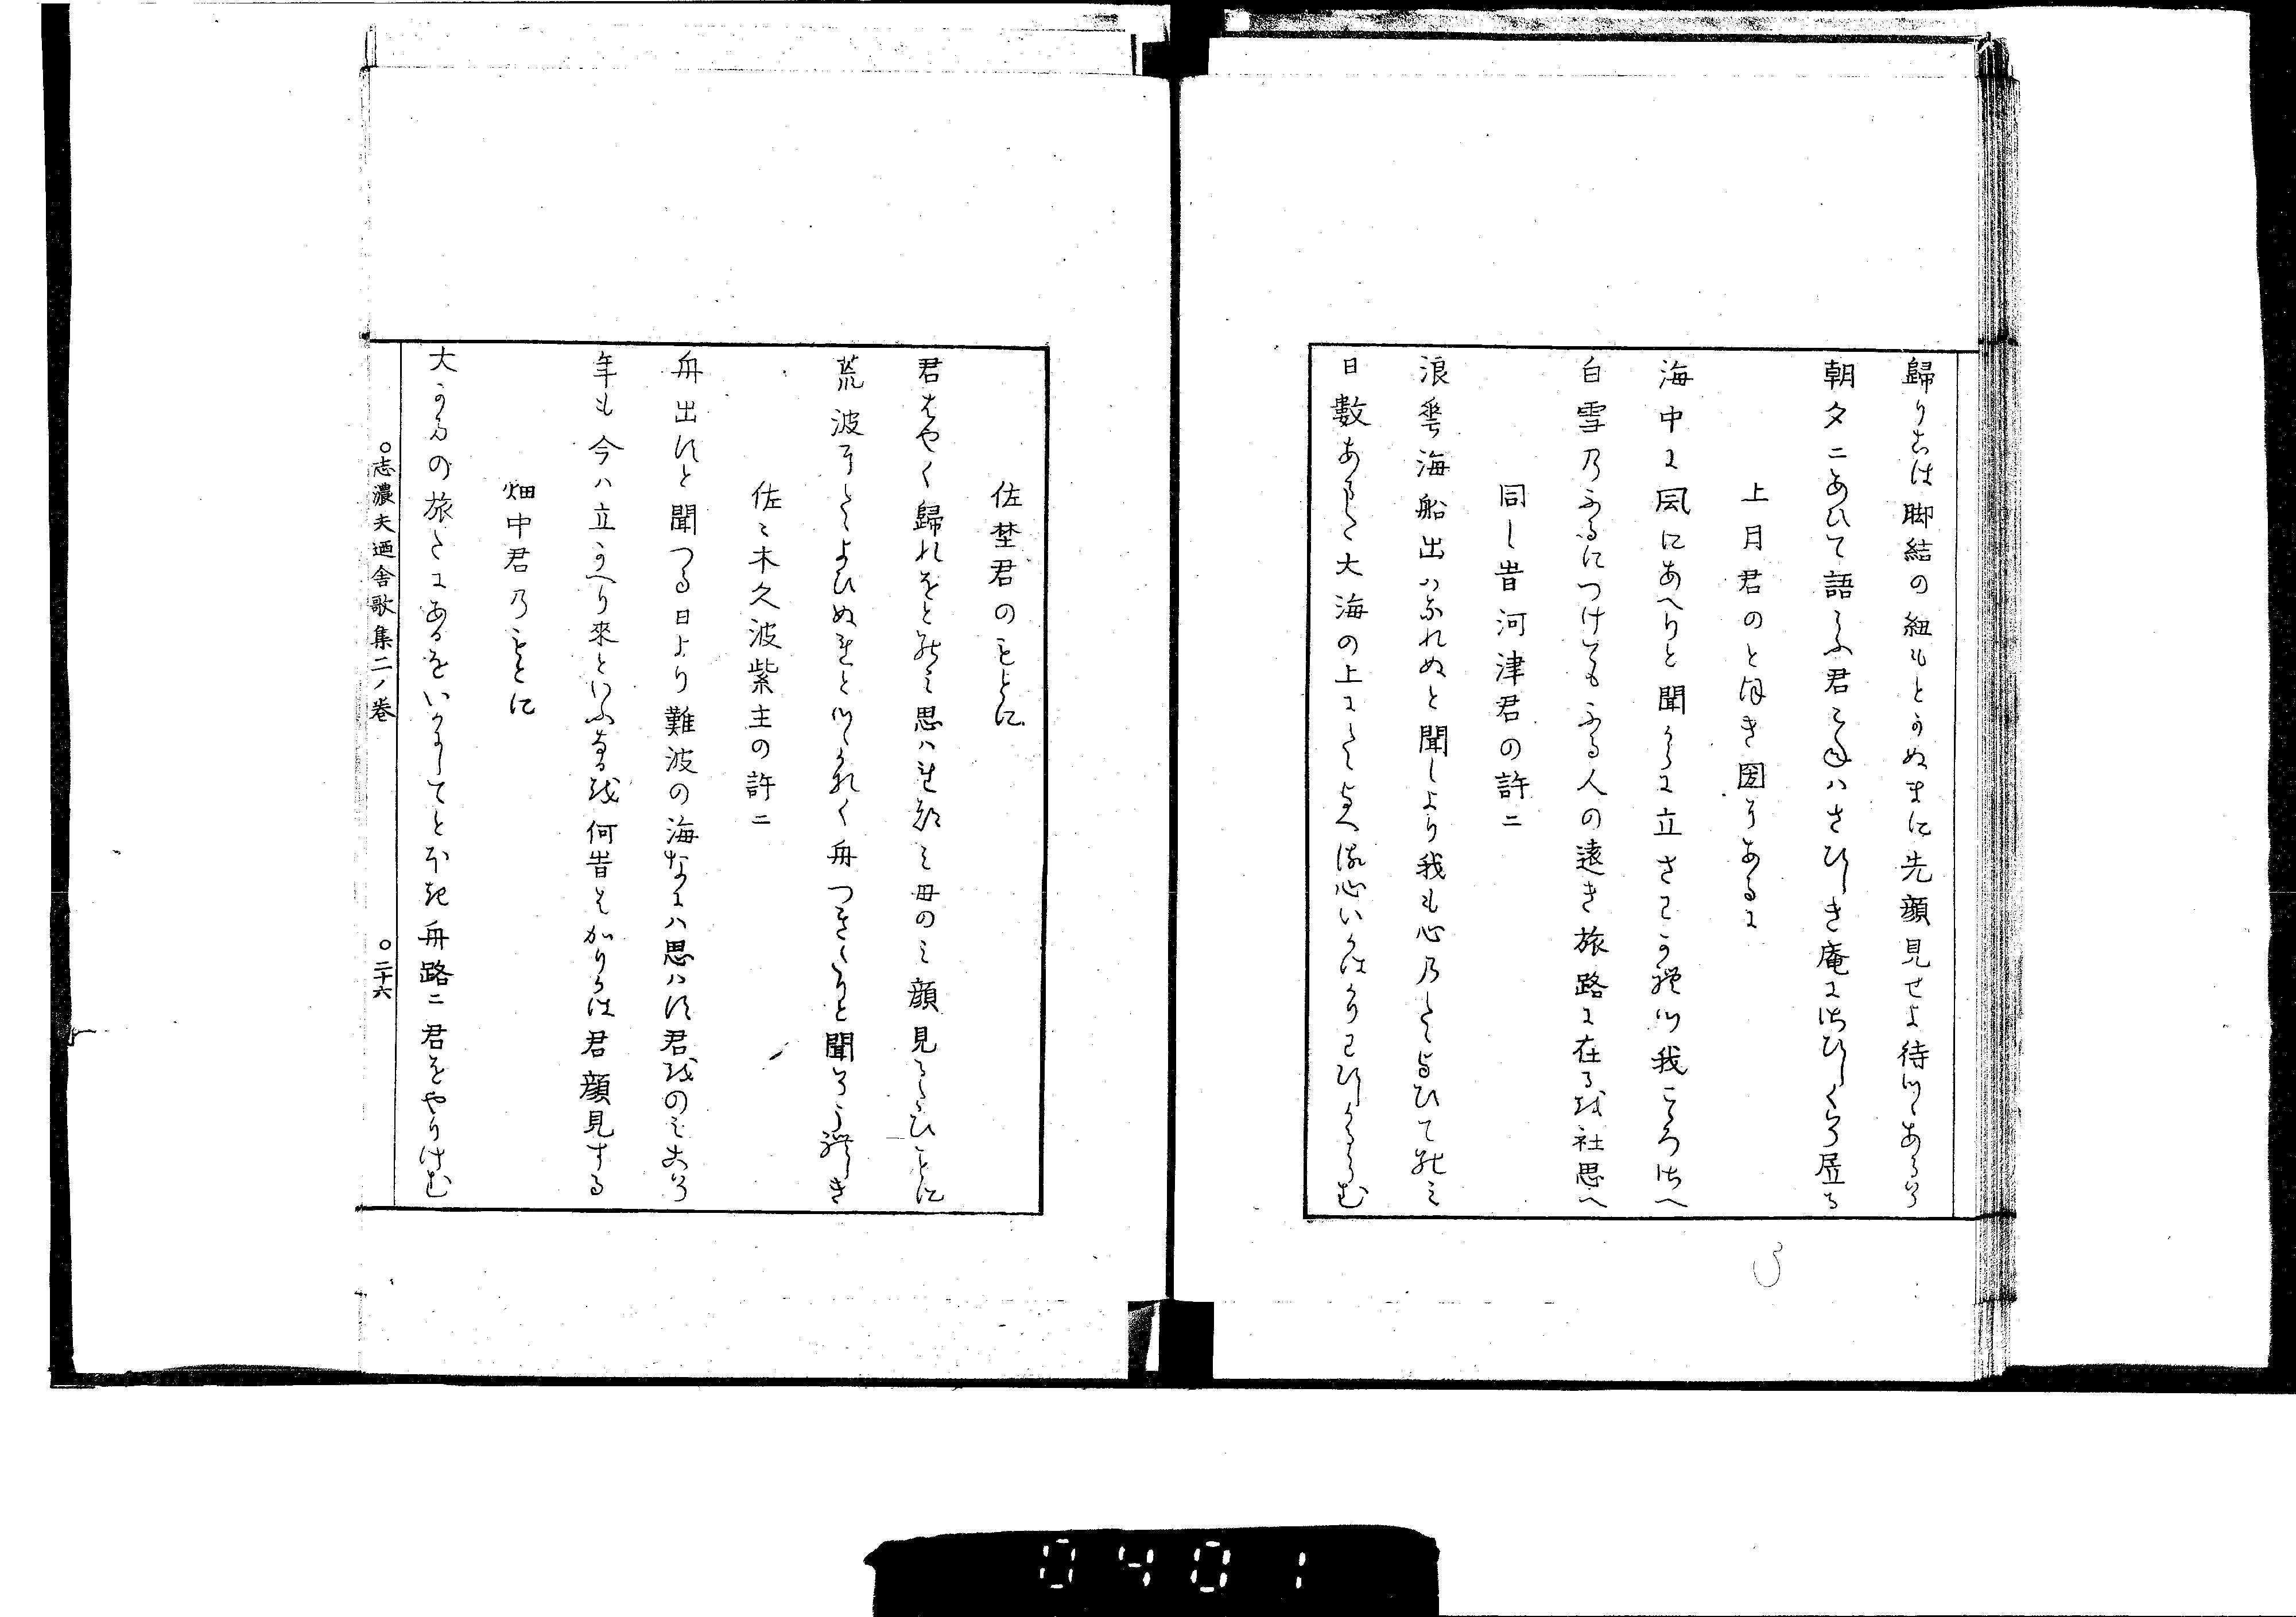 歸りこは脚結の紐もとかぬまに先顔見せよ待つゝあるそ
朝夕ニあひて語らふ君こねハさひしき庵にわひしくそ居る
上月君のとほき国にあるに
海中に風にあへりと聞からに立さわかれつ我こゝろさへ
白雪乃ふるにつけてもふる人の遠き旅路に在るを社思へ
同し時河津君の許ニ
浪華海船出ハなれぬと聞しより我も心乃たゝよひてのミ
日數あまた大海の上にたゝよへは心いかはかりわひしかるらむ
佐埜君のもとに
君はやく歸れをとのミ思ハれてミ母のミ顔見るたひことに
荒波にたゝよひぬれとつゝかなく舟つきたりと聞そうれしき
佐々木久波紫主の許ニ
舟出すと聞つる日より難波の海なにハ思ハす君をのミこそ
年も今ハ立かへり來といふなるを何時はかりかは君顔見する
畑中君乃もとに
大かたの旅たにあるをいかにしてとほき舟路ニ君をやりけむ
○志濃夫廼舎歌集二ノ巻 ○二十六
0401